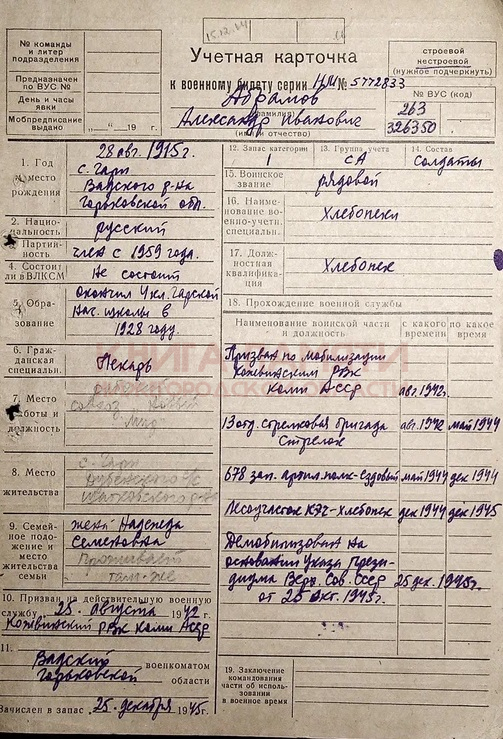 15.12.64
Учетная карточка
к военному билету серии НМ № 5772833
Абрамов
(фамилия)
Александр Иванович
(имя и отчество)
№ команды
и литер
подразделения
Предназначен
по ВУС №
День и часы
явки
Мобпредписание
выдано „ “ 19 г.
строевой
нестроевой
(нужное подчеркнуть)
№ ВУС (код)
263
326350
1. Год
и место
рождения
28 авг. 1915 г.
с. Гари
Вадского р-на
Горьковской обл.
2. Нацио-
нальность
русский
3. Партий-
ность
член с 1959 года.
4. Состоит
ли в ВЛКСМ
Не состоит
5. Обра-
зование
Окончил 4 кл. Гарской
нач. школы в
1928 году.
6. Граж-
данская
специальн.
Пекарь
7. Место
работы и
должность
8. Место
жительства
с. Гари
9. Семейное
поло-
жение и
место
жительства
семьи
жена Надежда
Семеновна
Проживает
там-же
10. Призван на действительную военную
службу „25“ августа 1942 г.
Кожвинский РВК Коми АССР
11.
Вадским военкоматом
Горьковской области
Зачислен в запас „25“ декабря 1945 г.
12. Запас категории
1
13. Группа учета
СА
14. Состав
солдаты
15. Воинское
звание
рядовой
16. Наиме-
нование во-
енно-учетн.
специальн.
Хлебопеки
17. Долж-
ностная
квалифика-
ция
Хлебопек
18. Прохождение военной службы
Наименование воинской части
и должность
с какого
времени
по какое
время
Призван по мобилизации
Кожвинским РВК
Коми АССР авг. 1942г.
13 отд. стрелковая бригада авг. 1942 май 1944
Стрелок
678 зап. артил. полк - Ездовый май 1944 дек 1944
Лесоучасток КЭЧ - хлебопек дек 1944 дек 1945
Демобилизован на
основании Указа прези-
диума Верх. Сов. СССР 25 дек. 1945г.
от 25 окт. 1945г.
19. Заключение
командования
части об исполь-
зовании
в военное время